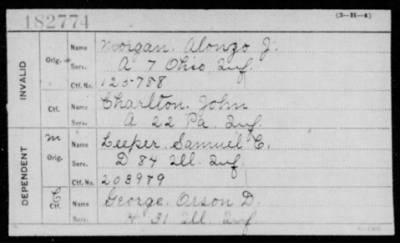 182774
(3-H-4)
INVALID
Orig.
Name Morgan, Alonzo J.
Serv. A 7 Ohio Inf.
Ctf. No. 125788
Ctf.
Name Charlton, John
Serv. A 22 Pa. Inf.
DEPENDENT
M
Orig.
Name Leeper, Samuel C.
Serv. D 84 Ill. Inf.
Ctf. No. 203979
Name George, Orson D.
Serv. 31 Ill. Inf